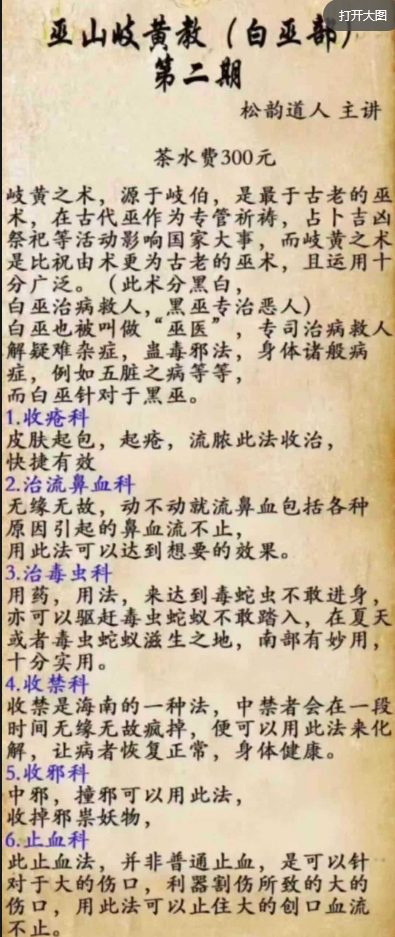 打开大图
巫山岐黄教（白巫部）
第二期
松韵道人 主讲
茶水费300元
岐黄之术，源于岐伯，是最于古老的巫
术，在古代巫作为专管祈祷，占卜吉凶
祭祀等活动影响国家大事，而岐黄之术
是比祝由术更为古老的巫术，且运用十
分广泛。（此术分黑白，
白巫治病救人，黑巫专治恶人）
白巫也被叫做“巫医”，专司治病救人
解疑难杂症，蛊毒邪法，身体诸般病
症，例如五脏之病等等，
而白巫针对于黑巫。
1.收疮科
皮肤起包，起疮，流脓此法收治，
快捷有效
2.治流鼻血科
无缘无故，动不动就流鼻血包括各种
原因引起的鼻血流不止，
用此法可以达到想要的效果。
3.治毒虫科
用药，用法，来达到毒蛇虫不敢进身，
亦可以驱赶毒虫蛇蚁不敢踏入，在夏天
或者毒虫蛇蚁滋生之地，南部有妙用，
十分实用。
4.收禁科
收禁是海南的一种法，中禁者会在一段
时间无缘无故疯掉，便可以用此法来化
解，让病者恢复正常，身体健康。
5.收邪科
中邪，撞邪可以用此法，
收掉邪祟妖物，
6.止血科
此止血法，并非普通止血，是可以针
对于大的伤口，利器割伤所致的大的
伤口，用此法可以止住大的创口血流
不止。